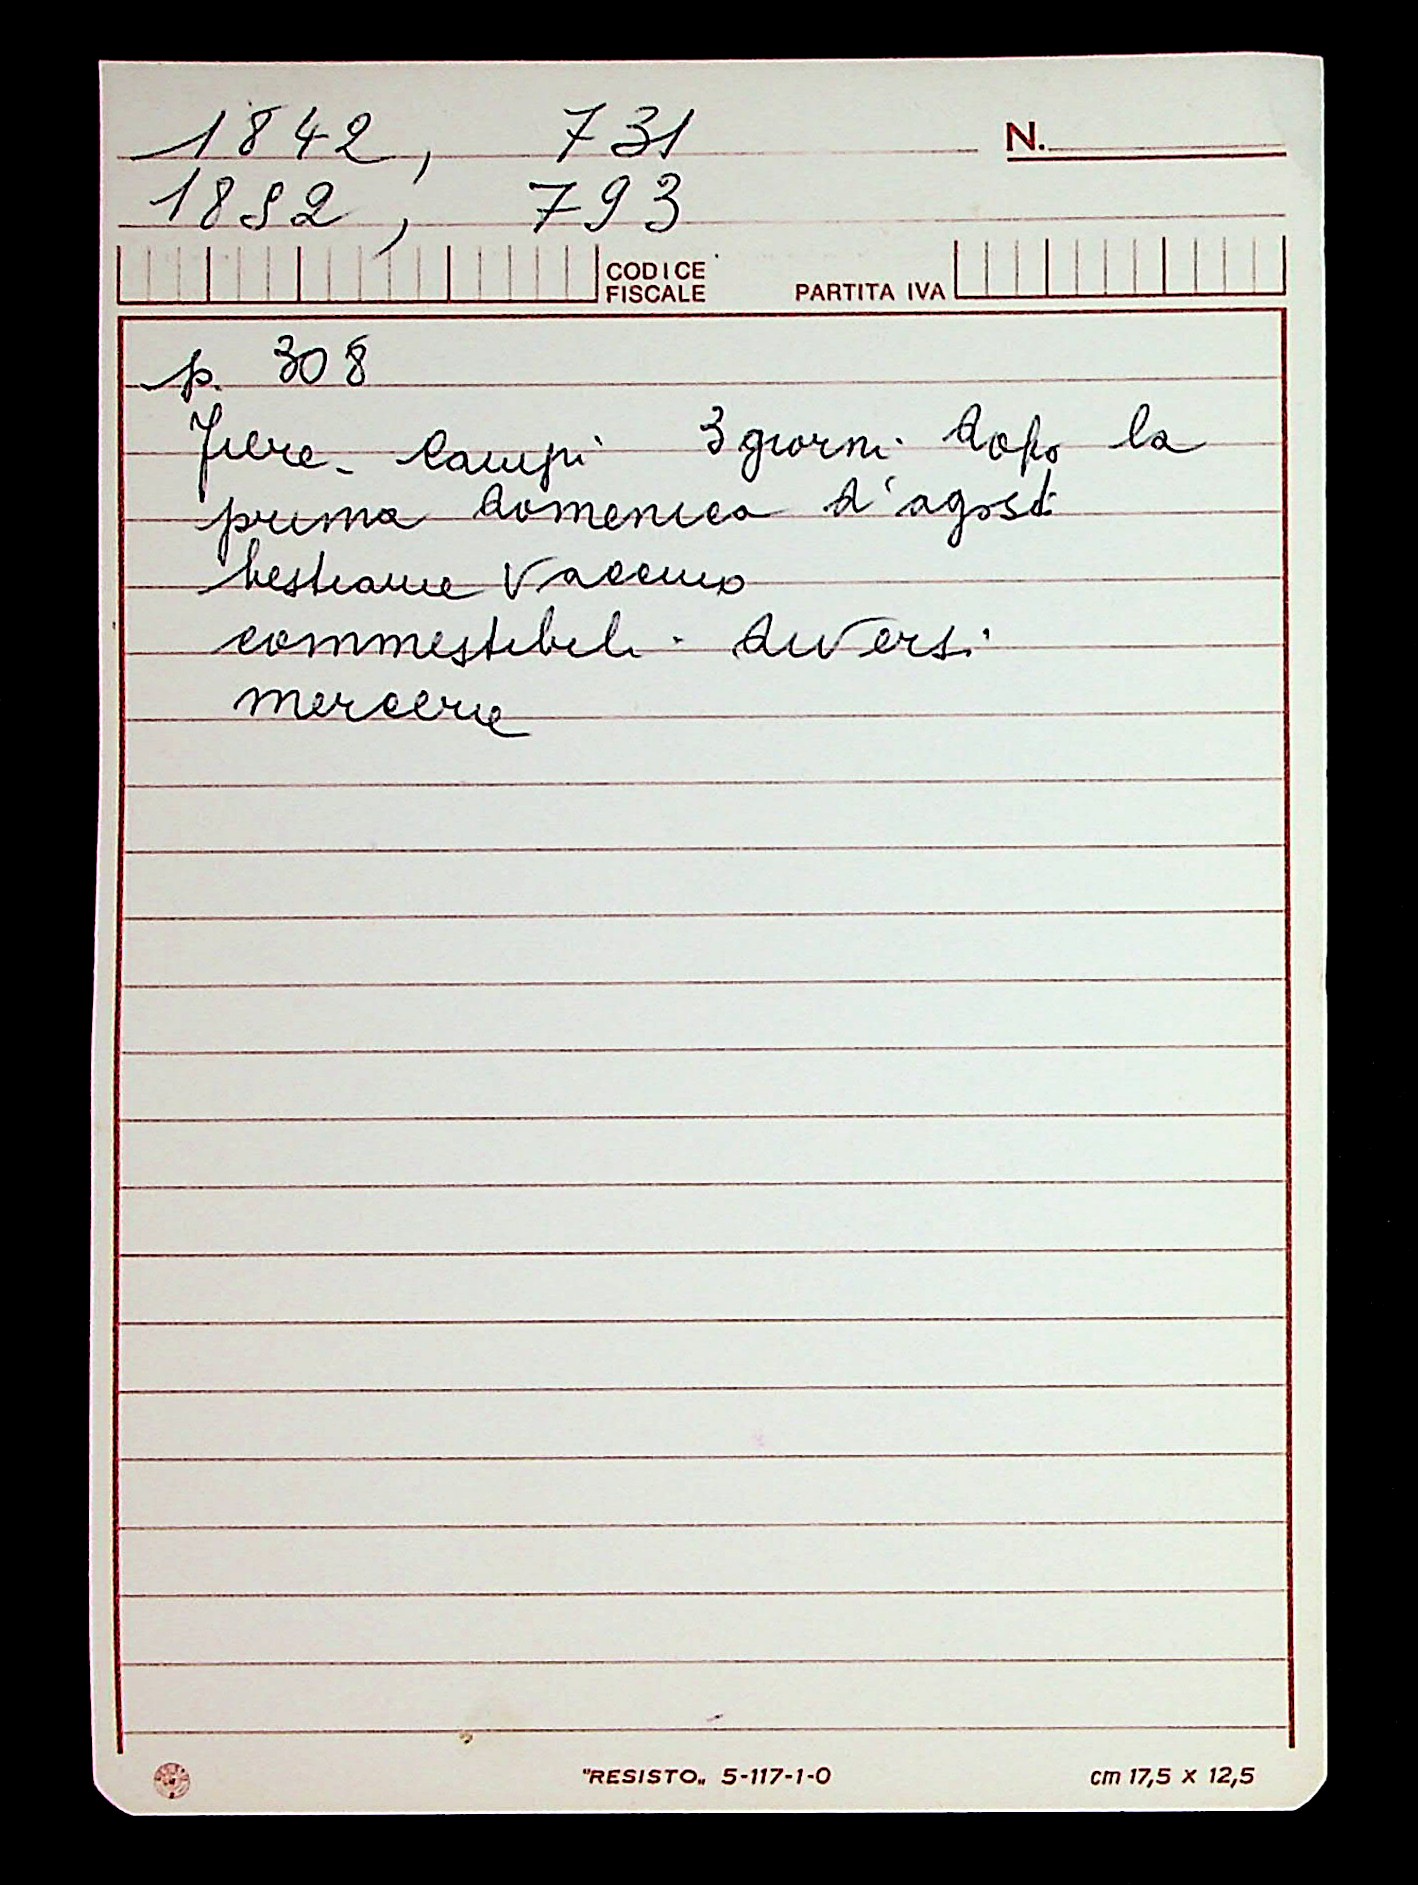 1842, 731
N.
1892, 793
CODICE FISCALE
PARTITA IVA
p. 308
Fiere - Campi 3 giorni dopo la
prima domenica d'agosto
bestiame vaccino
commestibili diversi
mercerie
"RESISTO„ 5-117-1-0
cm 17,5 x 12,5